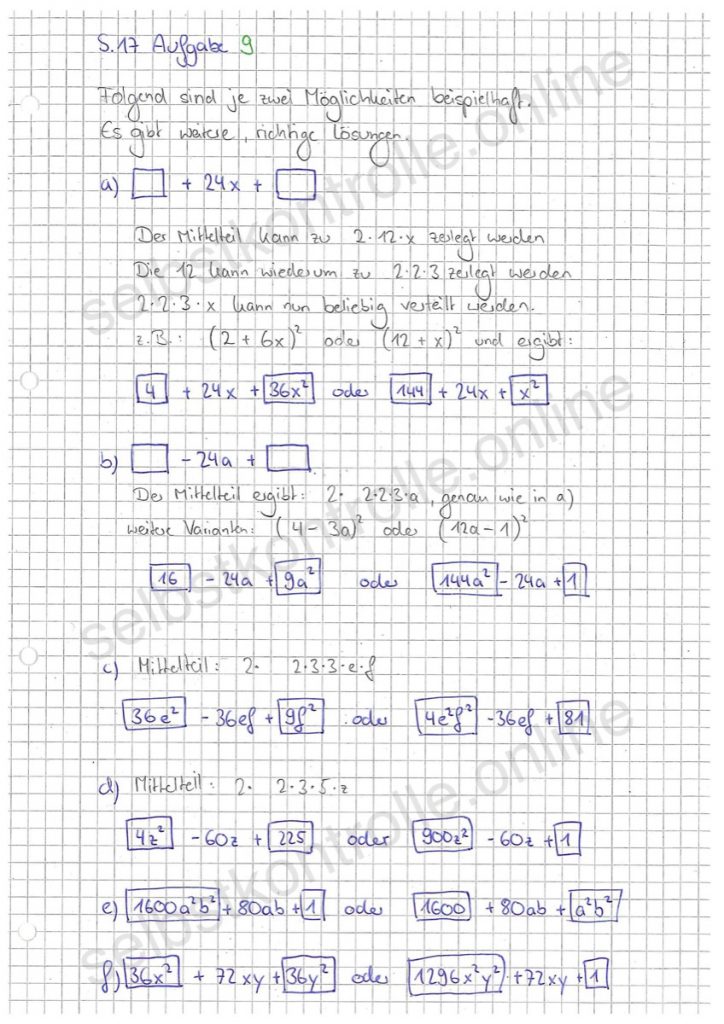 S. 17 Aufgabe 9
Folgend sind je zwei Möglichkeiten beispielhaft.
Es gibt weitere, richtige Lösungen.
a) □ + 24x + □
Der Mittelteil kann zu 2·12·x zerlegt werden
Die 12 kann wiederum zu 2·2·3 zerlegt werden
2·2·3·x kann nun beliebig verteilt werden.
z.B.: (2 + 6x)² oder (12 + x)² und ergibt:
4 + 24x + 36x² oder 144 + 24x + x²
b) □ - 24a + □
Der Mittelteil ergibt: 2· 2·2·3·a, genau wie in a)
weitere Varianten: (4 - 3a)² oder (12a - 1)²
16 - 24a + 9a² oder 144a² - 24a + 1
c) Mittelteil: 2· 2·3·3·e·f
36e² - 36ef + 9f² oder 4e²f² - 36ef + 81
d) Mittelteil: 2· 2·3·5·z
4z² - 60z + 225 oder 900z² - 60z + 1
e) 1600a²b² + 80ab + 1 oder 1600 + 80ab + a²b²
f) 36x² + 72xy + 36y² oder 1296x²y² + 72xy + 1
selbstkontrolle.online
selbstkontrolle.online
selbstkontrolle.online